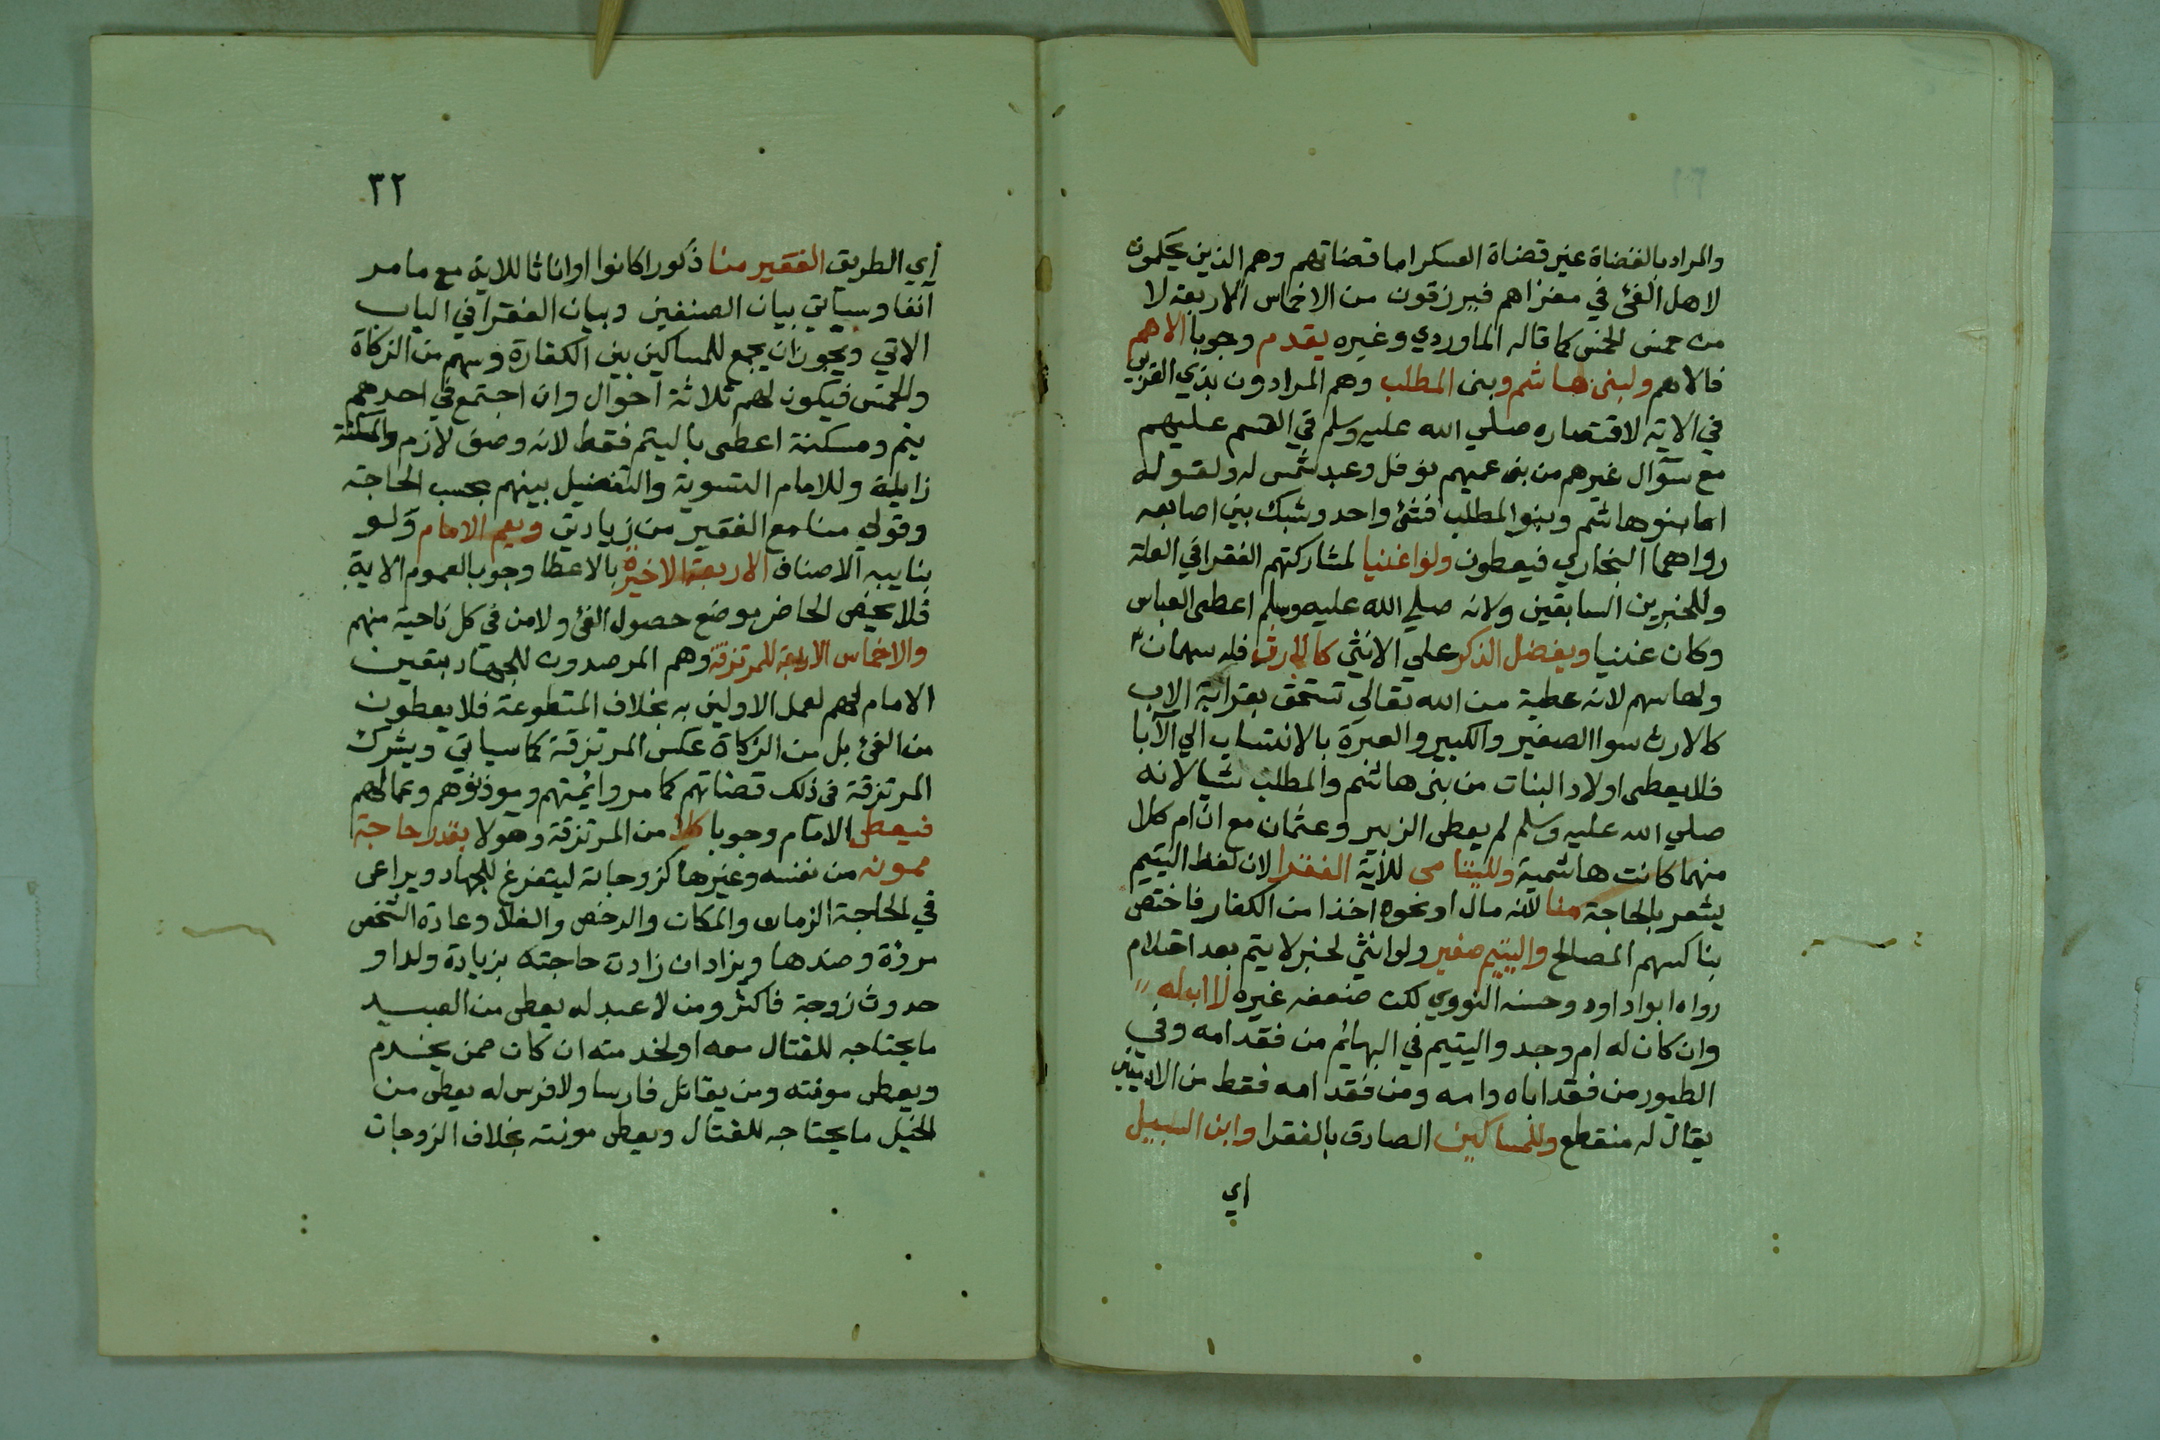 والمراد بالقضاة غير قضاة العسكر اما قضاتهم وهم الذين يحكمون
لاهل الفئ في مغزاهم فيرزقون من الاخماس الاربعة لا
من خمس الخمس كما قاله الماوردي وغيره يقدم وجوبا الاهم
فالاهم ولبني هاشم وبني المطلب وهم المرادون بذي القربى
في الاية لاقتصاره صلي الله عليه وسلم في القسم عليهم
مع سوال غيرهم من بني عميهم نوفل وعبد شمس له ولقوله
اما بنو هاشم وبنو المطلب فشئ واحد وشبك بين اصابعه
رواهما البخاري فيعطون ولو اغنيا لمشاركتهم الفقرا في العلة
وللخبرين السابقين ولانه صلي الله عليه وسلم اعطى العباس
وكان غنيا ويفضل الذكر علي الانثي كالارث فله سهمان
ولها سهم لانه عطية من الله تعالي تستحق بقرابة الاب
كالارث سوا الصغير والكبير والعبرة بالانتساب الي الآبا
فلا يعطى اولاد البنات من بني هاشم والمطلب شيا لانه
صلي الله عليه وسلم لم يعطى الزبير وعثمان مع ان ام كلا
منهما كانت هاشمية ولليتامى للآية الفقرا لان لفظ اليتيم
يشعر بالحاجة منا لانه مال او نحوه اخذ من الكفار فاختص
بنا كسهم المصالح واليتيم صغير ولو انثي لخبر لا يتم بعد احتلام
رواه ابو اداود وحسنه النووي لكن ضعفه غيره لا ابوله
وان كان له ام وجد واليتيم في البهائم من فقد امه وفي
الطيور من فقد اباه وامه ومن فقد امه فقط من الادميين
يقال له منقطع وللمساكين الصادق بالفقرا وابن السبيل
اي
٣٢
اي الطريق الفقير منا ذكورا كانوا او اناثا للاية مع ما مر
آنفا وسياتي بيان الصنفين وبيان الفقرا في الباب
الاتي ويجوز ان يجمع للمساكين بين الكفارة وسهم من الزكاة
والخمس فيكون لهم ثلاثة احوال وان اجتمع في احدهم
يتم ومسكنة اعطى باليتم فقط لانه وصف لازم والمسكنة
زايلة وللامام التسوية والتفضيل بينهم بحسب الحاجة
وقولي منا مع الفقير من زيادتي ويعم الامام ولو
بنايبه الاصناف الاربعة الاخيرة بالاعطا وجوبا لعموم الاية
فلا يخص الحاضر بموضع حصول الفئ ولا من في كل ناحية منهم
والاخماس الاربعة للمرتزقة وهم المرصدون للجهاد بتعيين
الامام لهم لعمل الاولين به بخلاف المتطوعة فلا يعطون
من الفئ بل من الزكاة عكس المرتزقة كما سياتي ويشرك
المرتزقة في ذلك قضاتهم كما مر وائمتهم وموذنوهم وعمالهم
فيعطي الامام وجوبا كلا من المرتزقة وهولا بقدر حاجة
ممونه من نفسه وغيرها كزوجاته ليتفرغ للجهاد ويراعى
في الحاجة الزمان والمكان والرخص والغلا وعادة الشخص
مروة وضدها ويزاد ان زادت حاجته بزيادة ولد او
حدوث زوجة فاكثر ومن لا عبد له يعطى من العبيد
ما يحتاجه للقتال معه او لخدمته ان كان ممن يخدم
ويعطى مونته ومن يقاتل فارسا ولا فرس له يعطى من
الخيل ما يحتاجه للقتال ويعطى مونته بخلاف الزوجات